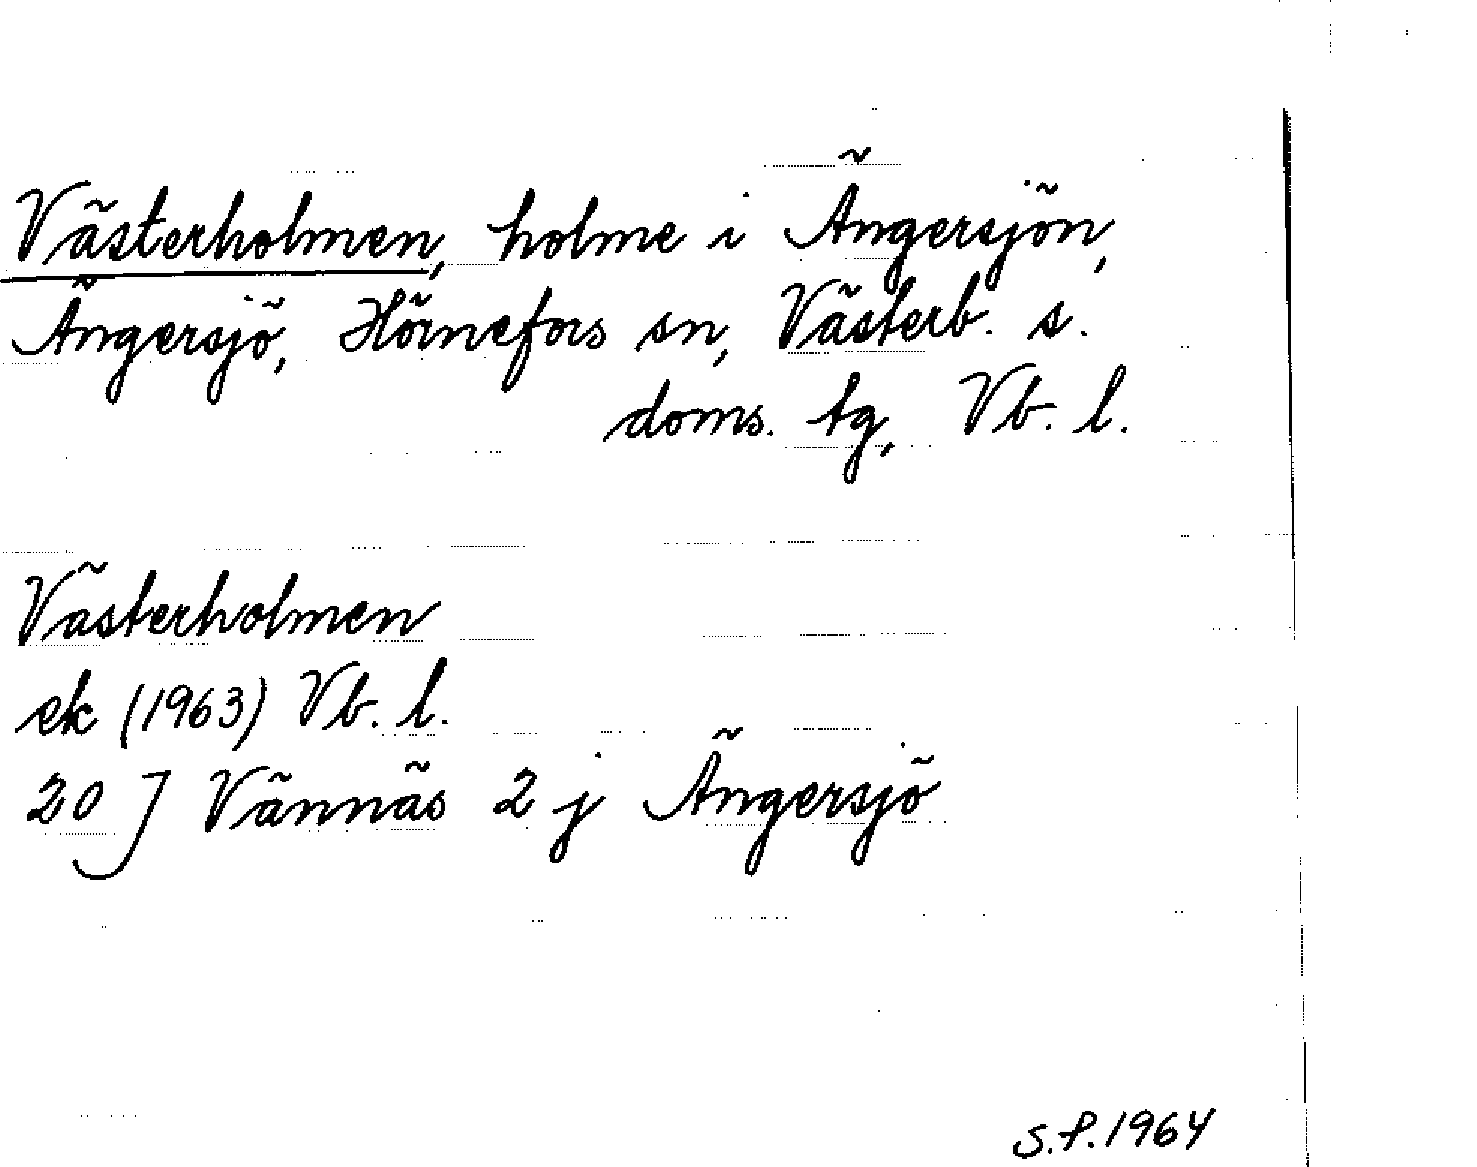 Västerholmen, holme i Ängersjön,
Ängersjö, Hörnefors sn, Västerb. s.
doms. tg, Vb. l.
Västerholmen
ek (1963) Vb. l.
20 J Vännäs 2 j Ängersjö
S.P. 1964